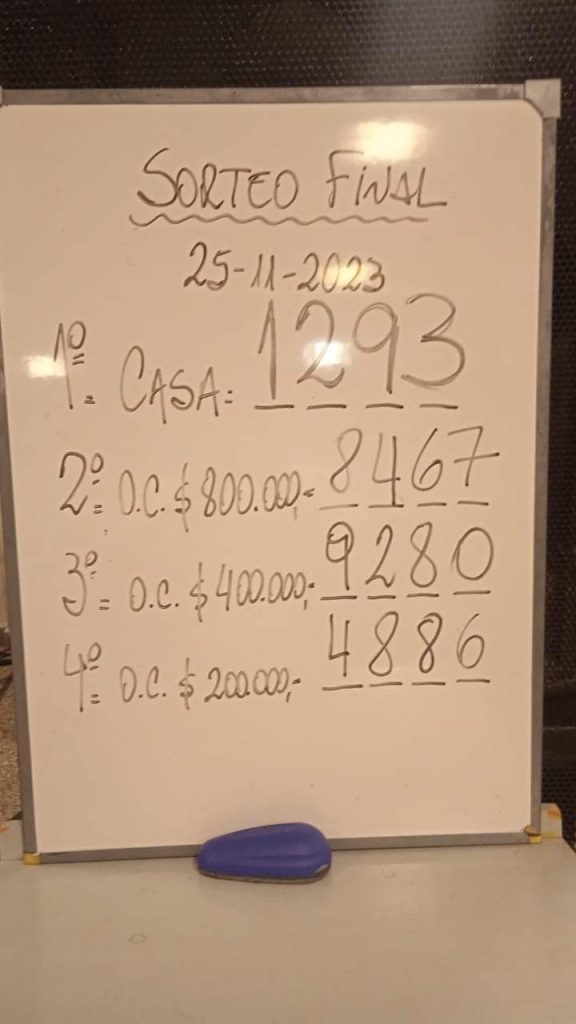 SORTEO FINAL
25-11-2023
1º= CASA: 1293
2º= O.C. $ 800.000,- 8467
3º= O.C. $ 400.000,- 9280
4º= O.C. $ 200.000,- 4886